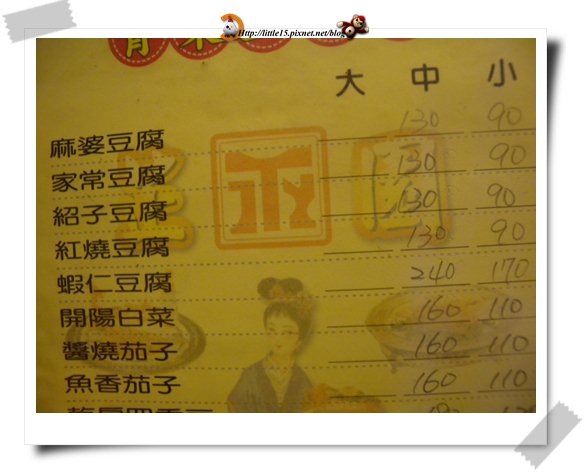 Http://little15.pixnet.net/blog
大 中 小
麻婆豆腐 130 90
家常豆腐 130 90
紹子豆腐 130 90
紅燒豆腐 130 90
蝦仁豆腐 240 170
開陽白菜 160 110
醬燒茄子 160 110
魚香茄子 160 110